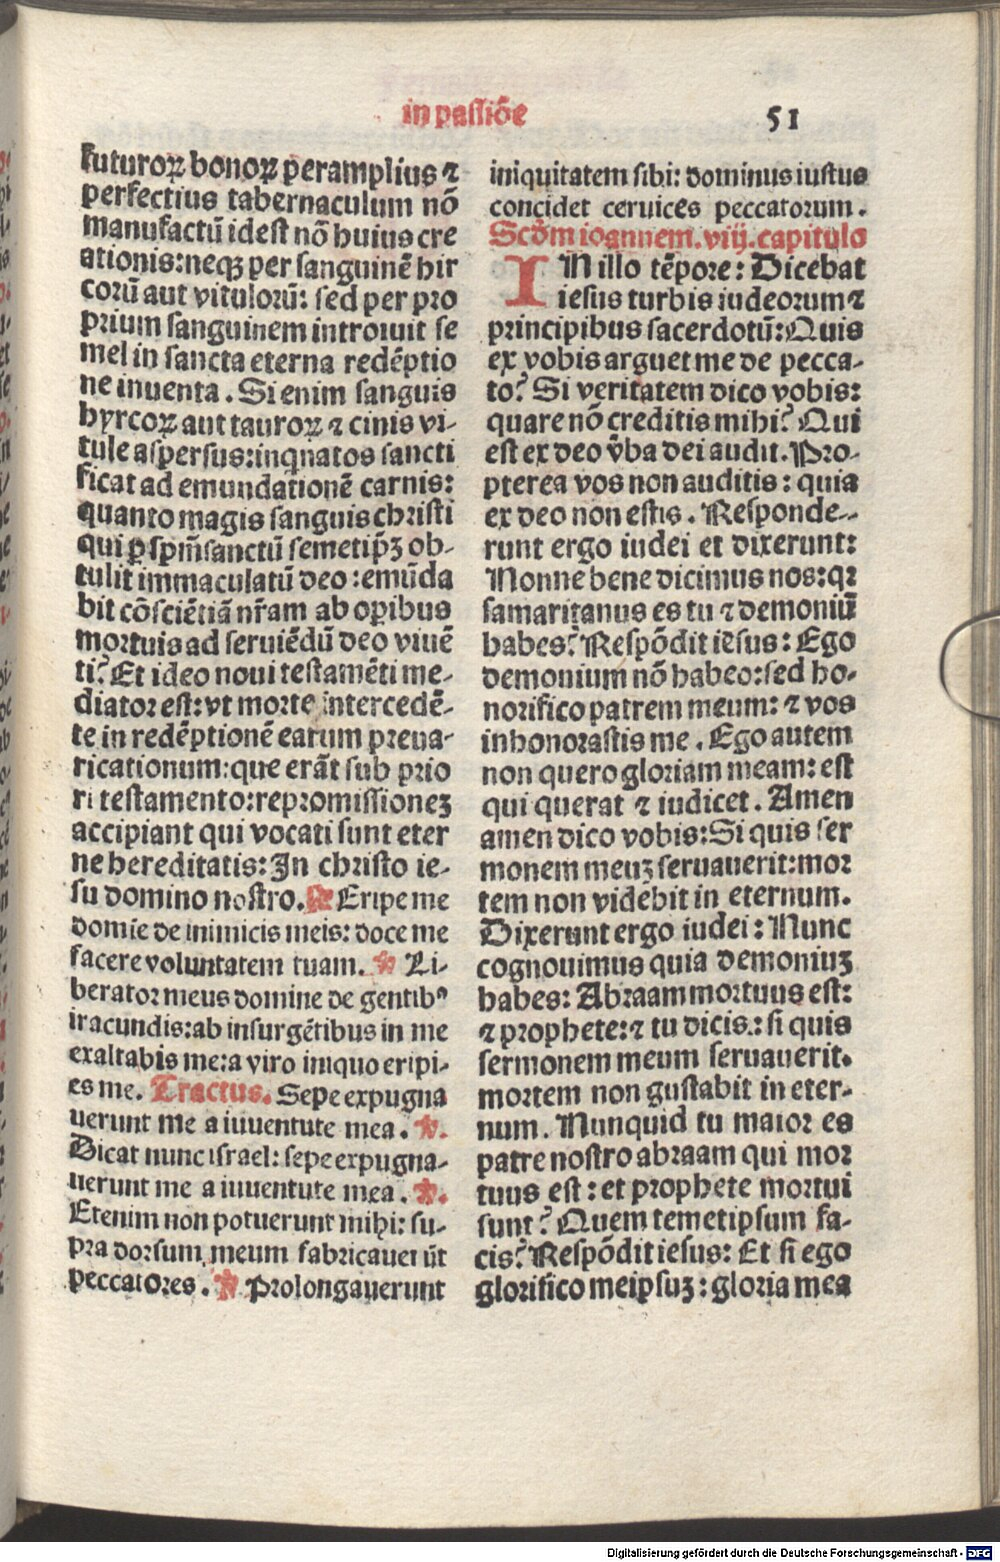 in passiõe
51
futuroꝝ bonoꝝ peramplius ⁊
perfectius tabernaculum nõ
manufactũ idest nõ huius cre
ationis: neqꝫ per sanguinẽ hir
corũ aut vitulorũ: sed per pro
prium sanguinem introiuit se
mel in sancta eterna redẽptio
ne inuenta. Si enim sanguis
hyrcoꝝ aut tauroꝝ ⁊ cinis vi-
tule aspersus: inqnatos sancti
ficat ad emundationẽ carnis:
quanto magis sanguis christi
qui ꝑ spm̃ sanctũ semetip̃ꝫ ob-
tulit immaculatũ deo: emũda
bit cõsciẽtiã nr̃am ab oꝑibus
mortuis ad seruiẽdũ deo viuẽ
ti? Et ideo noui testamẽti me-
diator est: vt morte intercedẽ-
te in redẽptionẽ earum preua-
ricationum: que erãt sub prio
ri testamento: repromissioneꝫ
accipiant qui vocati sunt eter
ne hereditatis: In christo ie-
su domino nostro. Eripe me
domie de inimicis meis: doce me
facere voluntatem tuam. ℣ Li-
berator meus domine de gentibꝰ
iracundis: ab insurgẽtibus in me
exaltabis me: a viro iniquo eripi-
es me. Tractus. Sepe expugna
uerunt me a iuuentute mea. ℣.
Dicat nunc israel: sepe expugna-
uerunt me a iuuentute mea. ℣.
Etenim non potuerunt mihi: su-
pra dorsum meum fabricauerũt
peccatores. ℣ Prolongauerunt
iniquitatem sibi: dominus iustus
concidet ceruices peccatorum.
Scõm ioannem. viij. capitulo
IN illo tẽpore: Dicebat
iesus turbis iudeorum ⁊
principibus sacerdotũ: Quis
ex vobis arguet me de pecca-
to? Si veritatem dico vobis:
quare nõ creditis mihi? Qui
est ex deo v̾ba dei audit. Pro-
pterea vos non auditis: quia
ex deo non estis. Responde-
runt ergo iudei et dixerunt:
Nonne bene dicimus nos: qꝛ
samaritanus es tu ⁊ demoniũ
habes? Respõdit iesus: Ego
demonium nõ habeo: sed ho-
norifico patrem meum: ⁊ vos
inhonorastis me. Ego autem
non quero gloriam meam: est
qui querat ⁊ iudicet. Amen
amen dico vobis: Si quis ser
monem meuꝫ seruauerit: mor
tem non videbit in eternum.
Dixerunt ergo iudei: Nunc
cognouimus quia demoniuꝫ
habes: Abraam mortuus est:
⁊ prophete: ⁊ tu dicis: si quis
sermonem meum seruauerit.
mortem non gustabit in eter-
num. Nunquid tu maior es
patre nostro abraam qui mor
tuus est: et prophete mortui
sunt? Quem temetipsum fa-
cis? Respõdit iesus: Et si ego
glorifico meipsuꝫ: gloria mea
Digitalisierung gefördert durch die Deutsche Forschungsgemeinschaft - DFG